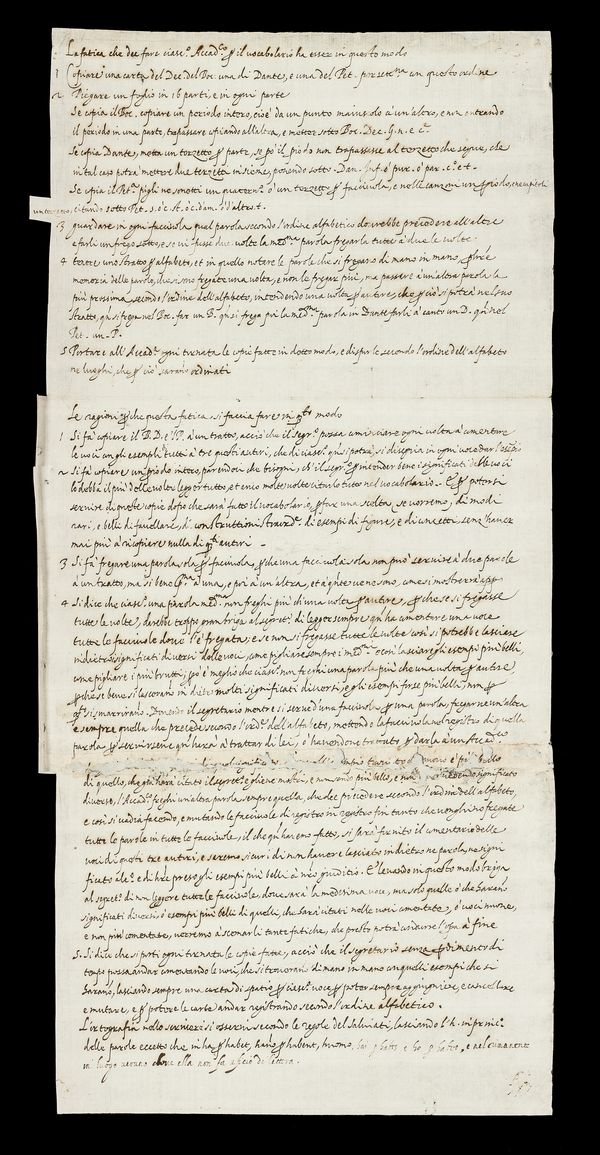 La fatica che dee fare ciasc.º Accad.co p il vocabolario ha esser in questo modo
1 Copiare una carta del Dec. del Boc. una di Dante, e una del Pet. per setna con questo ordine
2 Piegare un foglio in 16 parti, e in ogni parte
Se copia il Boc. copiare un periodo intero, cioè da un punto maiuscolo a un'altro, e non entrando
il periodo in una parte, trapassare copiando all'altra, e metter sotto Boc. Dec. G. n. e c.
Se copia Dante, metta un terzetto p parte, se pò il piodo non trapassasse al terzetto che segue, che
in tal caso potrà mettere due terzetti insieme, ponendo sotto. Dan. Inf. o pur. o par. c.º e t.
Se copia il Pet.ª pigli ne sonetti un quatern.º o un terzetto p facciuola, e nelle canzoni un piodo, e ne capitoli
un terzetto, citando sotto Pet. s. o c. st. o c.
3 guardare in ogni facciuola qual parola secondo l'ordine alfabetico dovrebbe precedere all'altre
e farli un frego sotto, e se vi fusse due volte la med.ma parola fregarla tutte a due le volte
4 tenere uno stratto p alfabeto, et in quello notare le parole che si fregano di mano in mano, p
memoria delle parole, che si sono fregate una volta, e non le fregar più, ma passare a un'altra parola la
più prossima secondo l'ordine dell'alfabeto, intendendo una volta p autore, che p ciò si potrà nel suo
stratto, qn si frega nel Boc. far un B. qn si frega poi la med.ma parola in Dante farli a canto un D. qn nel
Pet. un P.
5 Portare all'Accad.ª ogni tornata le copie fatte in detto modo, e disporle secondo l'ordine dell'alfabeto
ne luoghi, che p ciò saranno ordinati
Le ragioni p che questa fatica si faccia fare in qsto modo
1 Si fa copiare il B. D. e'l P. a un tratto, acciò che il segr.º possa cominciare ogni volta a comentare
le voci con gli esempli tutti a tre questi autori, che di ciasc.º
2 Si fa copiare un piodo intero, parendoci che bisogni, ch'il segr.º p intender bene i significati delle voci
lo debba il più delle volte legger tutto, et anco molte volte citarlo tutto nel vocabolario. E p potersi
servire di queste copie dopo che sarà fatto il vocabolario, p far una scelta se vorremo, di modi
rari, e belli di favellare, di construttioni straord.e di esempi di figure, e di concetti senz'haver
mai più a ricopiare nulla di qsti autori
3 Si fa fregare una parola sola p facciuola, p che una facciuola sola non può servire a due parole
a un tratto, ma si bene pma a una, e poi a un'altra, et a qnte ve ne sono, come si mostrerrà app.º
4 Si dice che ciasc.º una parola med.ma non freghi più di una volta p autore, p che se si fregasse
tutte le volte, darebbe troppo gran briga al segret.º di legger sempre qn ha comentare una voce
tutte le facciuole dove l'è fregata; e se non si fregasse tutte le volte così si potrebbe lasciare
indietro significati diversi delle voci, come pigliare sempre i med.mi o con lasciare gli esempi più belli,
come pigliare i più brutti, pò è meglio che ciasc.º non freghi una parola più che una volta p autore
p che se bene si lasceranno in dietro molti significati diversi, e gli esempi forse più belli, non p
qsto si smarriranno. Dovendo il segretario mentre si serve d'una facciuola p una parola, fregarne un'altra
e sempre quella che precede secondo l'ord.e dell'alfabeto, mettendo la facciuola nel registro di quella
parola p servirsene qn harà a trattar di lei, o havendone trovato p darla a un Accad.co
di quello, che già harà citato il segret.º e gliene manchi, e non sono più belli, e non
diverso, l'Accad.co freghi un'altra parola sempre quella, che dee precedere secondo l'ordine dell'alfabeto,
e così si vadia facendo, e mutando le facciuole di registro in registro fin tanto che venghino fregate
tutte le parole in tutte le facciuole, il che qn haremo fatto, si sarà fornito il comentario delle
voci di questi tre autori, e saremo sicuri di non havere lasciato indietro ne parole, ne signi
ficato alc.º e di hav.e preso gli esempi più belli a nro giuditio. E levando in questo modo briga
al segret.º di non leggere tutte le facciuole, dove sarà la medesima voce, ma solo quelle o che saranno
significati diversi, o esempi più belli di quelli, che sarà citati nelle voci comentate, o voci nuove,
e non più comentate, verremo a scemarli tante fatiche, che presto potrà condurre l'opa a fine
5. Si dice che si porti ogni tornata le copie fatte, acciò che il segretario senza pdimento di
tempo possa andar comentando le voci, che si troveranno di mano in mano con quelli esempi che ci
saranno, lasciando sempre una carta di spatio p ciasc.ª voce p poter sempre aggiugniere, e cancellare
e mutare, e p potere le carte andar registrando secondo l'ordine alfabetico.
L'ortografia nello scriversi osservi secondo le regole del Salviati, lasciando l'h. in princ.º
delle parole eccetto che in ha p habet, hanno p habent, huomo, hoi
in luogo veruno dove ella non fa uficio di lettera.